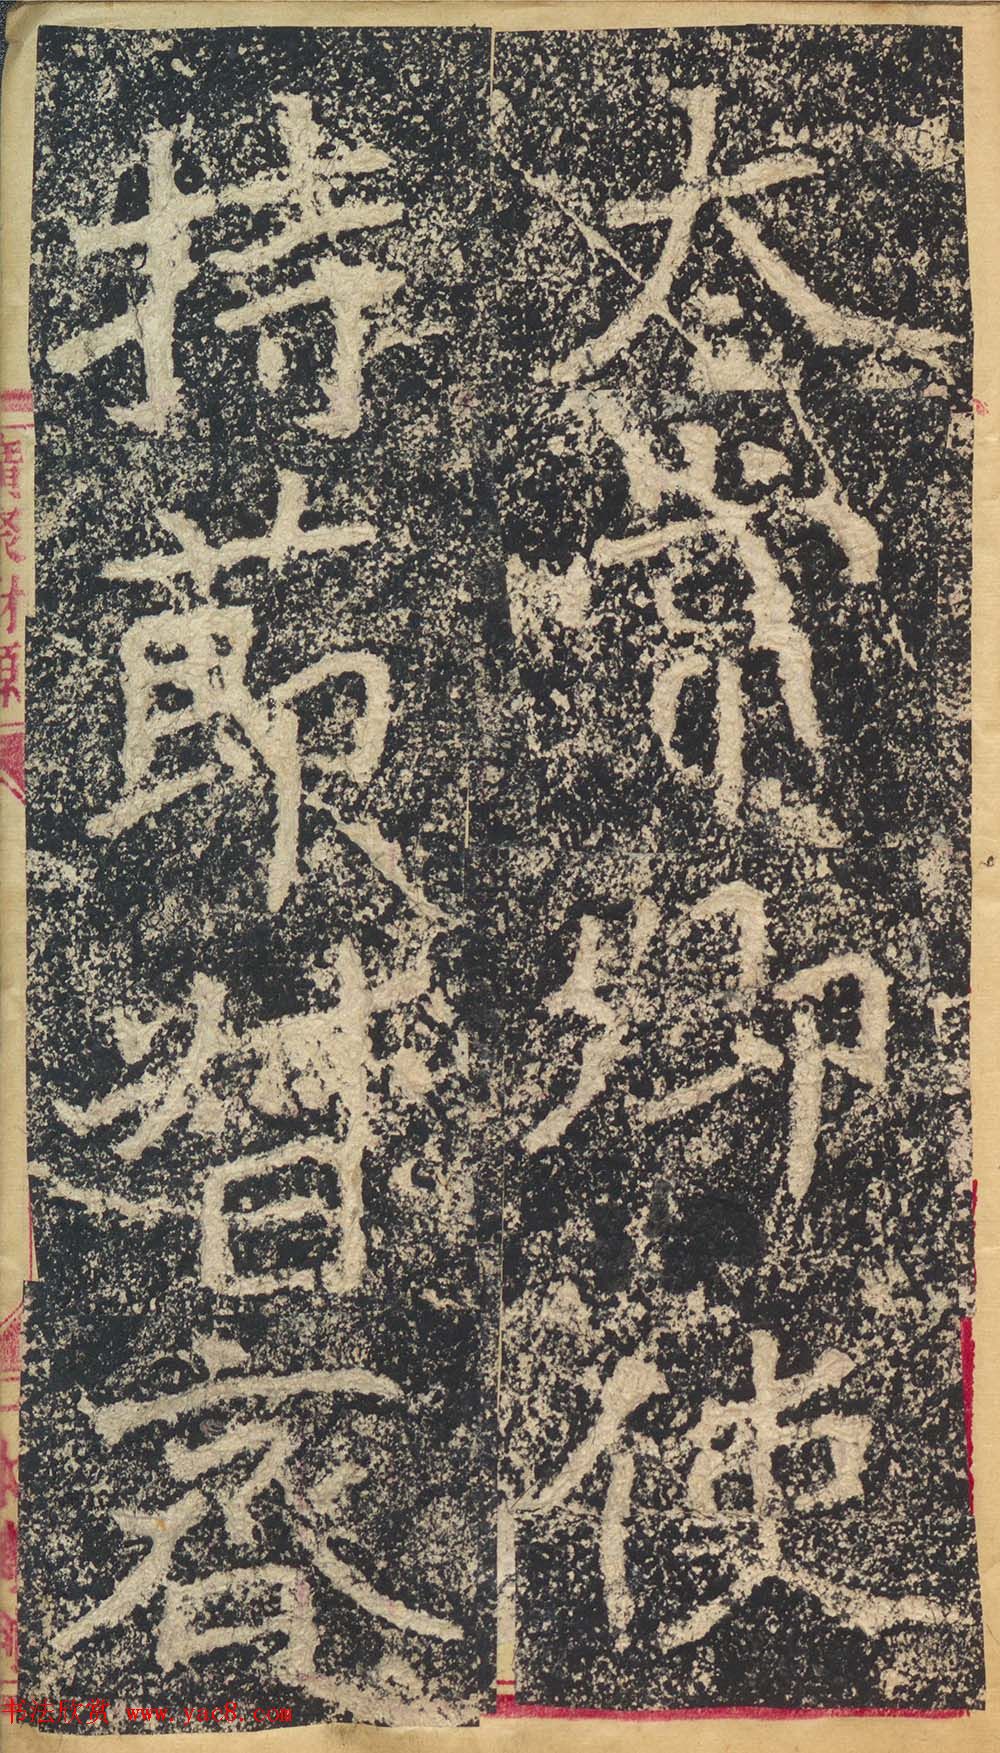 太常卿使
持莭督齊
书法欣赏 www.yac8.com